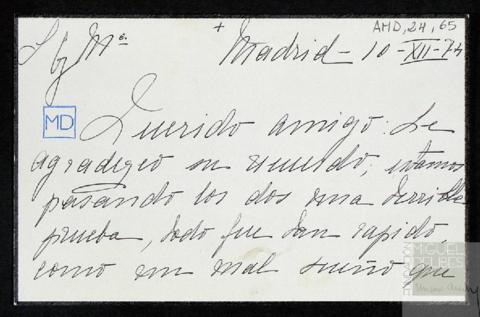 AMD, 24, 65
+
Madrid - 10 - XII - 74
MD
Querido amigo: Le
agradezco su recuerdo, estamos
pasando los dos una terrible
prueba, todo fue tan rapido,
como un mal sueño que
MIGUEL
DELIBES